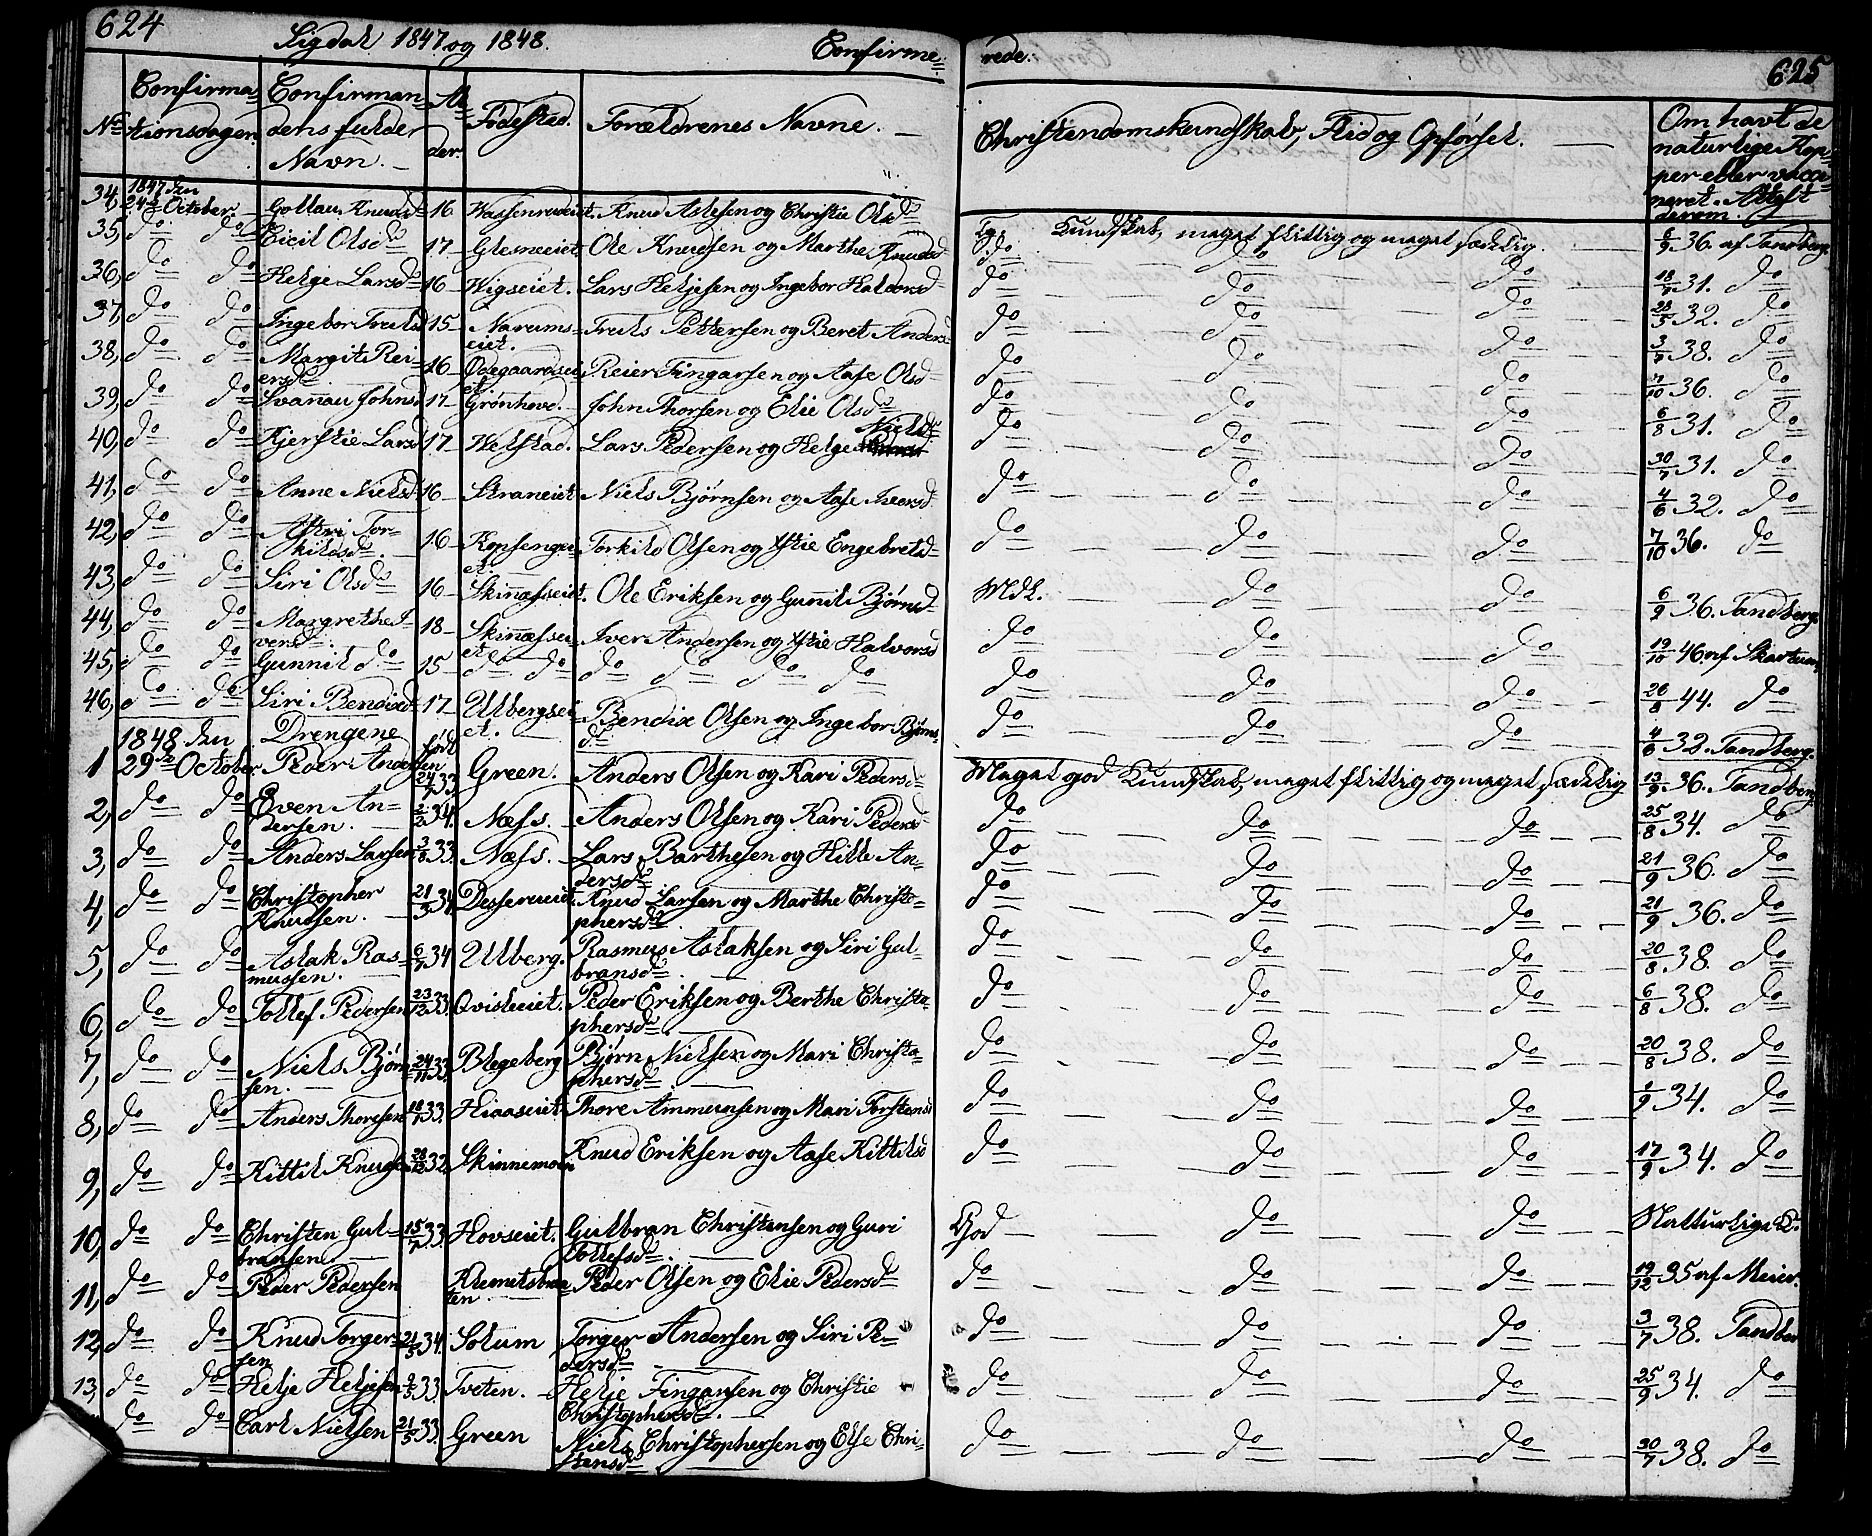 624
Sigdal 1847 og 1848.
Confirme=
rede.
625
No
Confirma=
tionsdagen.
Confirman=
dens fulde
Navn.
Al=
der.
Fødested.
Forældrenes Navne.
Christendomskundskab, Flid og Opførsel.
Om havt de
naturlige Kop=
per eller vacci=
neret. Attest
derom.
34, 1847 den 24de October Knudsd 16 Knud Aslesen og Christie Olsd Tg. Kundskab, meget flittig og meget sædelig. 6/9 36. af Tandberg.
35, do do Eicil Olsd 17 Glesneeiet Ole Knudsen og Marthe Knudsd do do do 18/7 31. do
36, do do Helge Larsd 16 Wigseiet. Lars Heljesen og Ingebor Halvorsd do do do 28/5 32. do
37, do do Ingebor Trulsd 15 Narums=eiet. Truls Pettersen og Beret Andersd do do do 3/7 38. do
38, do do Margit Rei=ersd 16 Ødegaardseiet Reier Fingarsen og Aase Olsd do do do 7/10 36. do
39, do do Svanau Johnsd 17 Grønhovd. John Thorsen og Elie Olsd do do do 6/8 31. do
40, do do Kjerstie Larsd 17 Welstad. Lars Pedersen og Helge Nielsd do do do 30/7 31. do
41, do do Anne Nielsd 16 Straneeiet Niels Bjørnsen og Aase Iversd do do do 4/6 32. do
42, do do Astri Tor=kildsd. 16 Kopsengei=et. Torkild Olsen og Astie Engebretsd do do do 7/10 36. do
43, do do Siri Olsd 16 Skinæsseiet. Ole Eriksen og Gunnil Bjørnsd Mdl. do do 6/9 36. Tandberg.
44, do do Margrethe I=versd. 18 Skinæssei=et Iver Andersen og Astie Halvorsd do do do 19/10 46. af Skartum
45, do do Gunnil do 15 do do do do do do do do do 26/8 44. do
46, do do Siri Bendixd 17 Ulbergsei=et. Bendix Olsen og Ingebor Bjørns=d do do do 4/6 32. Tandberg.
1848 den Drengene født
1 29de October Peder Andersen 24/7 33 Green. Anders Olsen og Kari Pedersd Meget god Kundskab, meget flittig og meget sædelig 13/9 36. Tandberg
2, do do Even An=dersen. 2/2 34. Næss. Anders Olsen og Kari Pedersd do do do 25/8 34. do
3, do do Anders Larsen 3/8 33. Næss. Lars Barthesen og Hille An=dersd do do do 21/9 36. do
4, do do Christopher Knudsen. 21/3 34. Desserudeiet. Knud Larsen og Marthe Christo=phersd do do do 21/9 36. do
5, do do Aslak Ras=mussen. 6/7 34 Ulberg. Rasmus Aslaksen og Siri Gul=bransd. do do do 20/8 38. do
6, do do Tollef Pedersen 23/12 33. Qvisleeiet. Peder Eriksen og Berthe Christo=phersd. do do do 6/8 38. do
7, do do Niels Bjørn=sen. 24/11 33. Blegeberg Bjørn Nielsen og Mari Christo=phersd. do do do 20/8 38. do
8, do do Anders Thoresen 18/7 33. Hiaaseiet Thore Ammunsen og Mari Torstensd do do do 1/9 34. do
9, do do Kittil Knudsen 28/12 32. Skinnemoen Knud Eriksen og Aase Kittilsd do do do 17/9 34. do
10, do do Christen Gul=bransen 15/7 33. Hovseiet. Gulbran Christensen og Guri Tollefsd. God do do Naturlige K.
11, do do Peder Pedersen Klemetsbra=ten Peder Olsen og Elie Pedersd do do do 19/12 35 af Meier.
12, do do Knud Torger=sen 21/5 34. Solum Torger Andersen og Siri Pe=dersd do do do 3/7 38. Tandber
13, do do Helje Heljesen 9/5 33. Tveten. Helje Fingarsen og Christie Christophersd. do do do 25/9 34. do
do do Carl Nielsen 21/5 33. Green Niels Christophersen og Else Chri=stensd do do do 30/7 38. do